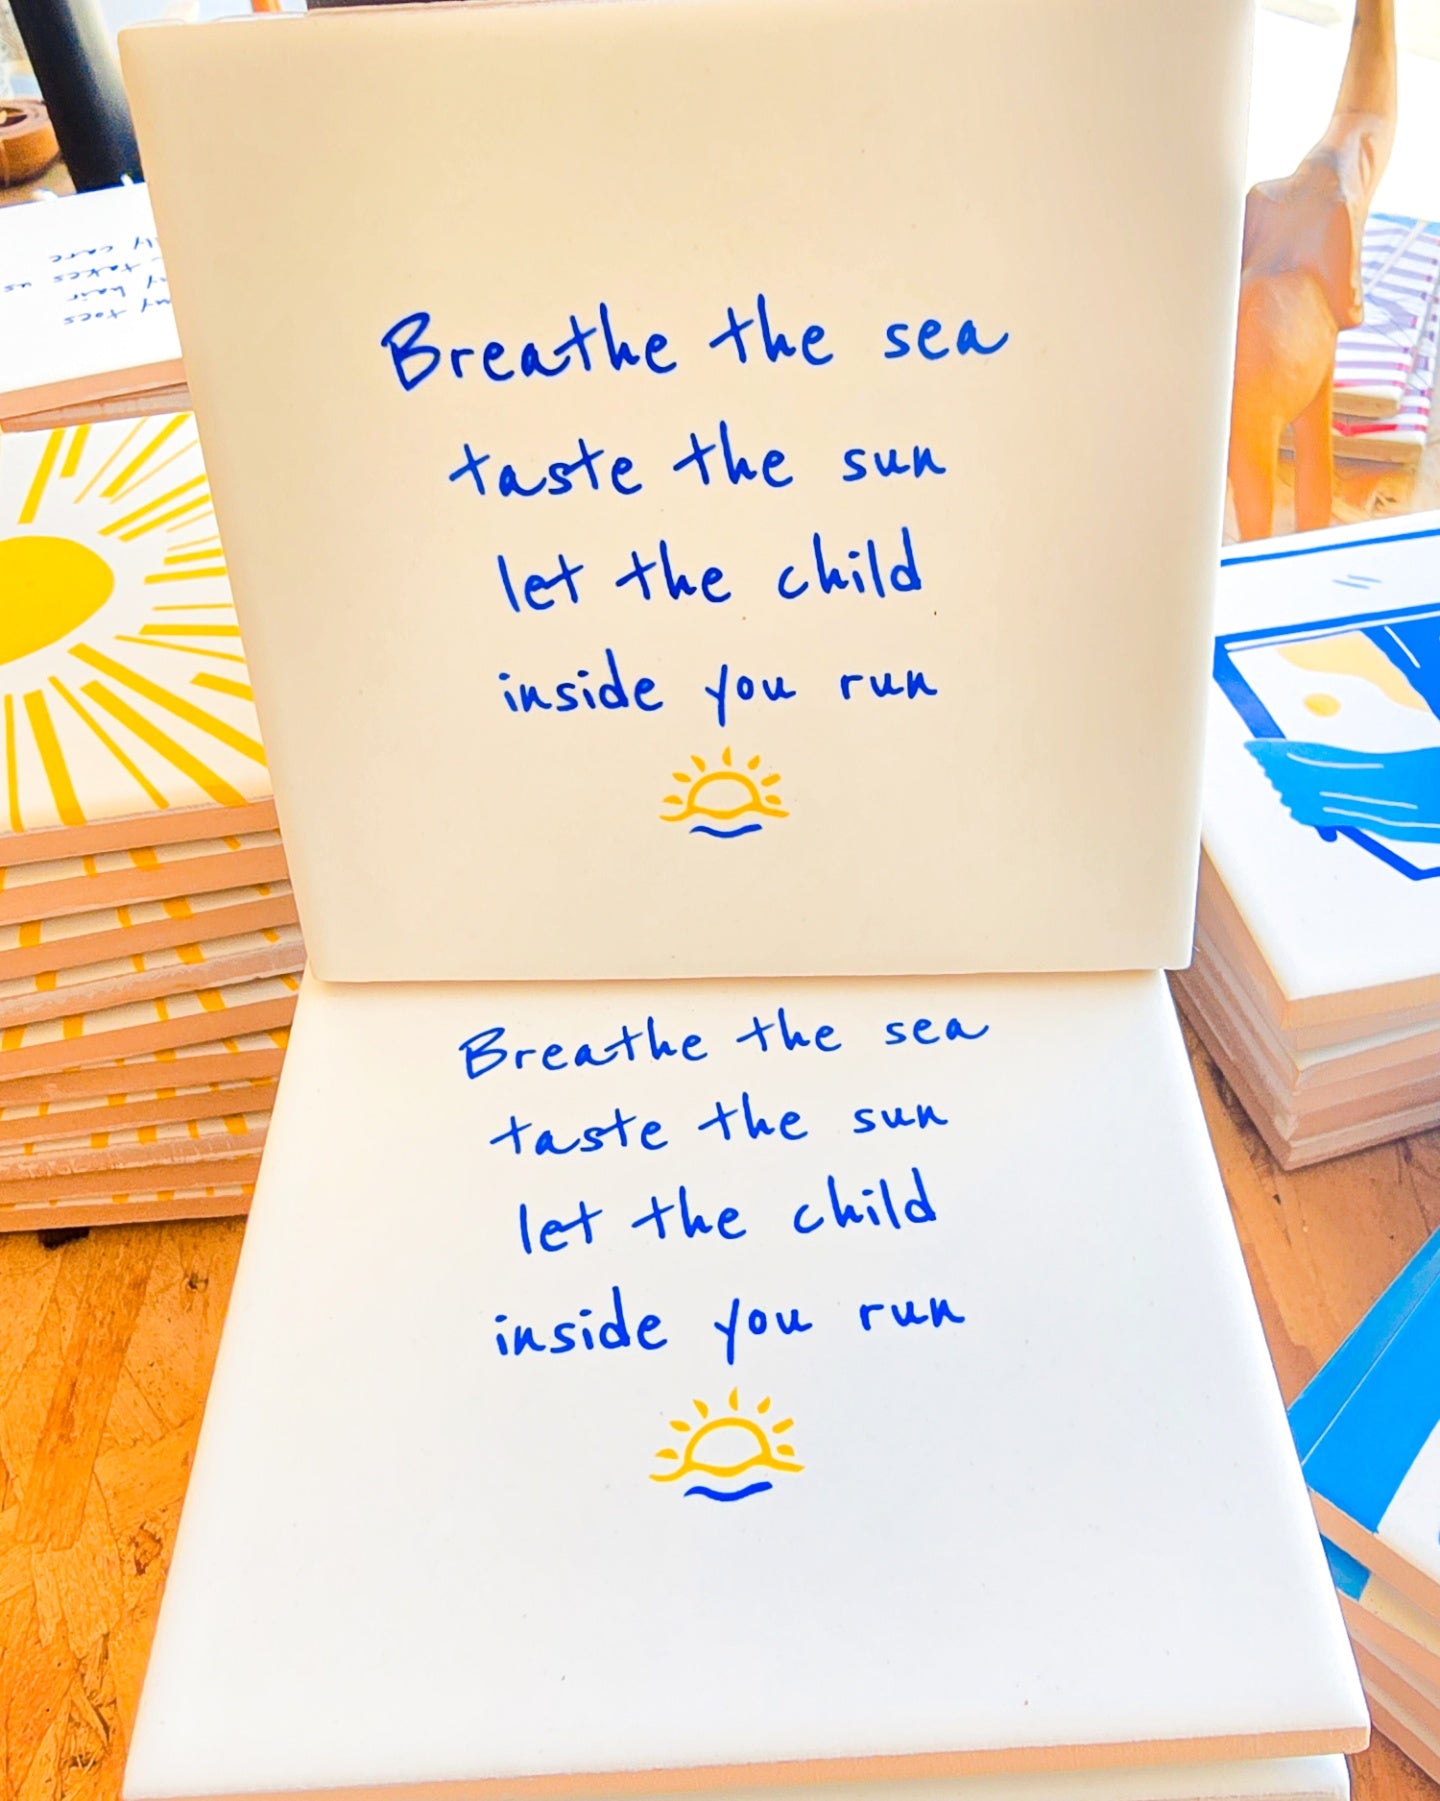 Breathe the sea
taste the sun
let the child
inside you run
Breathe the sea
taste the sun
let the child
inside you run
my toes
my hair
takes us
care